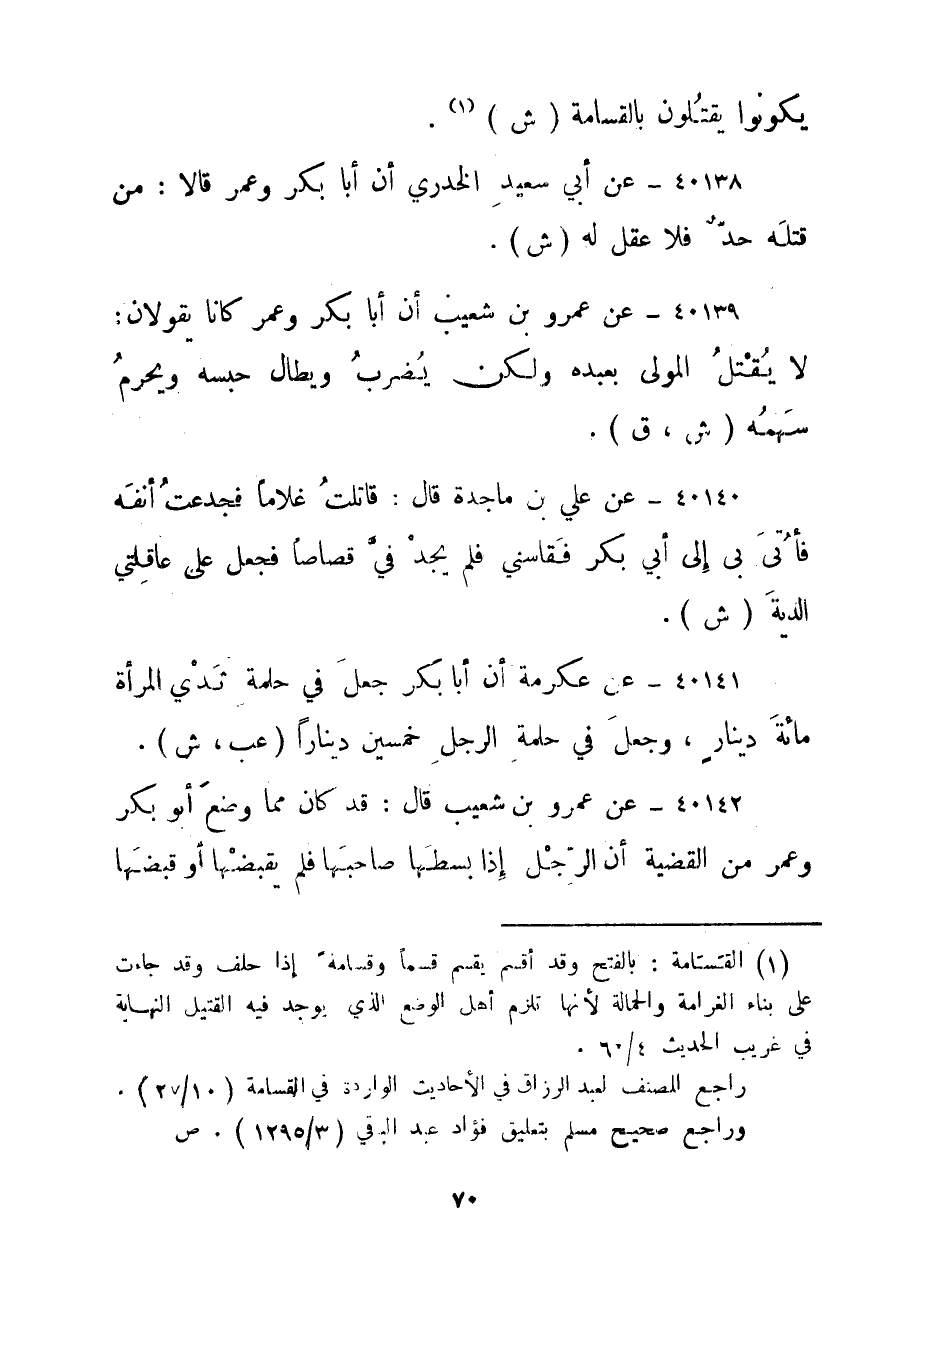 يكونوا يقتُلون بالقسامة ( ش ) (١) .
٤٠١٣٨ ـ عن أبي سعيدِ الخدري أن أبا بكر وعمر قالا : من
قتلَه حدٌّ فلا عقل له ( ش ) .
٤٠١٣٩ ـ عن عمرو بن شعيب أن أبا بكر وعمر كانا يقولان :
لا يُقْتلُ المولى بعبده ولكن يُضربُ ويطال حبسه ويحرمُ
سَهمُه ( ش ، ق ) .
٤٠١٤٠ ـ عن علي بن ماجدة قال : قاتلتُ غلاماً فجدعتُ أنفَه
فأُتيَ بي إلى أبي بكر فقاسني فلم يجدْ فيَّ قصاصاً فجعل على عاقلتي
الديةَ ( ش ) .
٤٠١٤١ ـ عن عكرمة أن أبا بكر جعلَ في حلمةِ ثَدْي المرأة
مائةَ دينارٍ ، وجعلَ في حلمةِ الرجلِ خمسين ديناراً ( عب ، ش ) .
٤٠١٤٢ ـ عن عمرو بن شعيب قال : قد كان مما وضعَ أبو بكر
وعمر من القضية أن الرِّجْل إذا بسطَها صاحبَها فلم يقبضْها أو قبضَها
(١) القَسَامة : بالفتح وقد أقسم يقسم قسماً وقسامةً إذا حلف وقد جاءت
على بناء الغرامة والحمالة لأنها تلزم أهل الوضع الذي يوجد فيه القتيل النهاية
في غريب الحديث ٦٠/٤ .
راجع المصنف لعبد الرزاق في الأحاديث الواردة في القسامة ( ٢٧/١٠ ) .
وراجع صحيح مسلم بتعليق فؤاد عبد الباقي ( ١٢٩٥/٣ ) . ص
٧٠